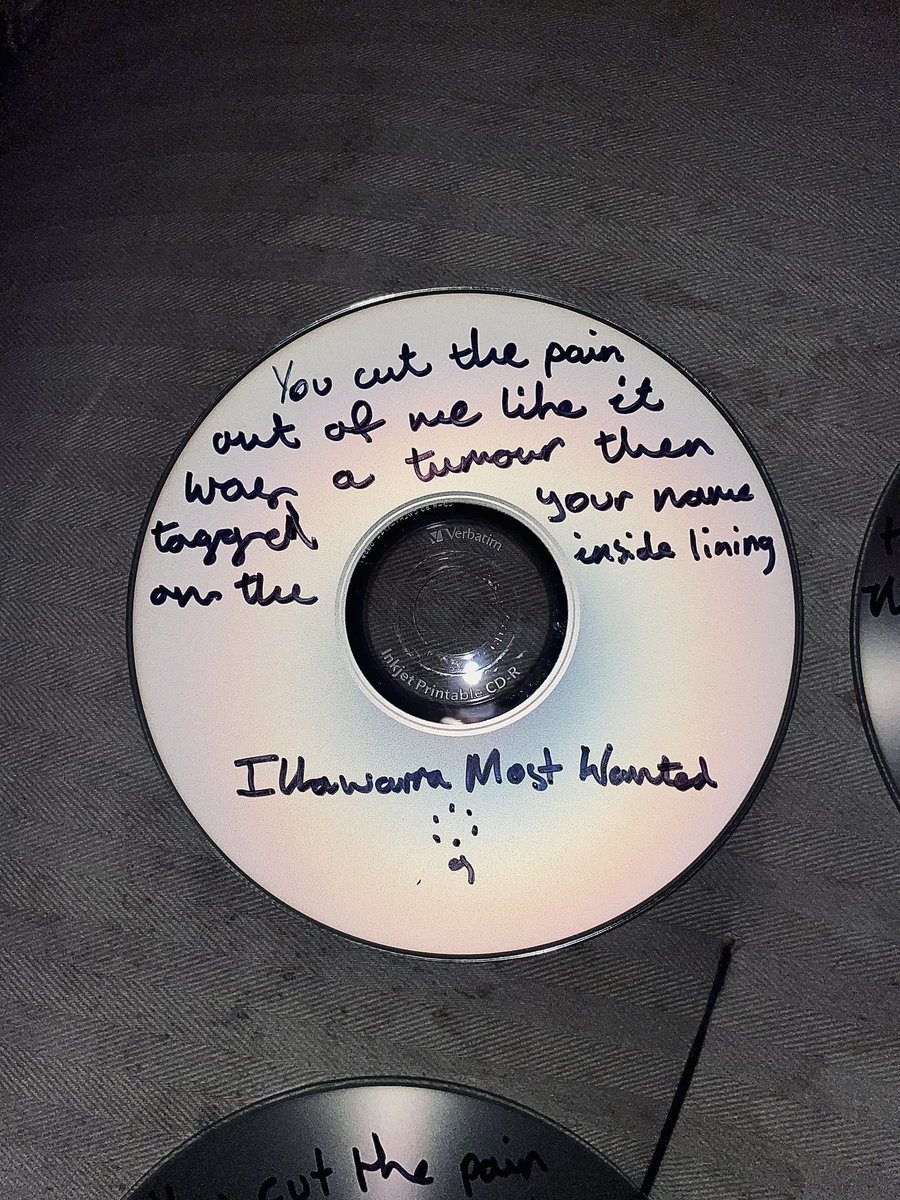 You cut the pain
out of me like it
was a tumour then
tagged your name
on the inside lining
Verbatim
Inkjet Printable CD-R
Illawarra Most Wanted
cut the pain